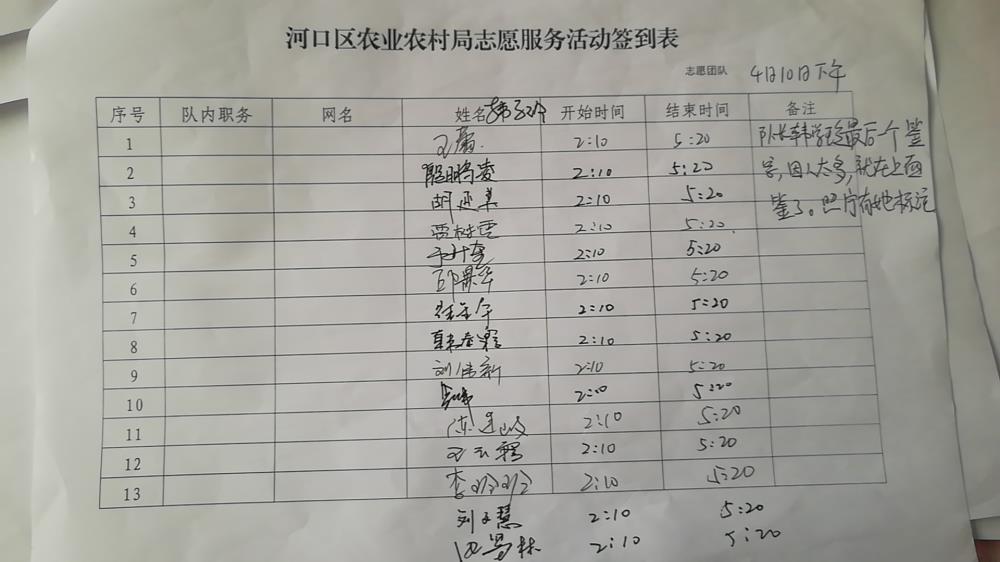 河口区农业农村局志愿服务活动签到表
志愿团队 4月10日下午
序号 队内职务 网名 姓名 开始时间 结束时间 备注
1 王 2:10 5:20 队长韩学珍最后一个签
2 聪鹏凌 2:10 5:20 字,因人太多,就在上面
3 胡延美 2:10 5:20 签了。照片有她标注
4 贾树雪 2:10 5:20
5 2:10 5:20
6 邱景华 2:10 5:20
7 2:10 5:20
8 2:10 5:20
9 刘伟新 2:10 5:20
10 2:10 5:20
11 陈 2:10 5:20
12 王云鹤 2:10 5:20
13 李玲玲 2:10 5:20
刘文慧 2:10 5:20
林 2:10 5:20